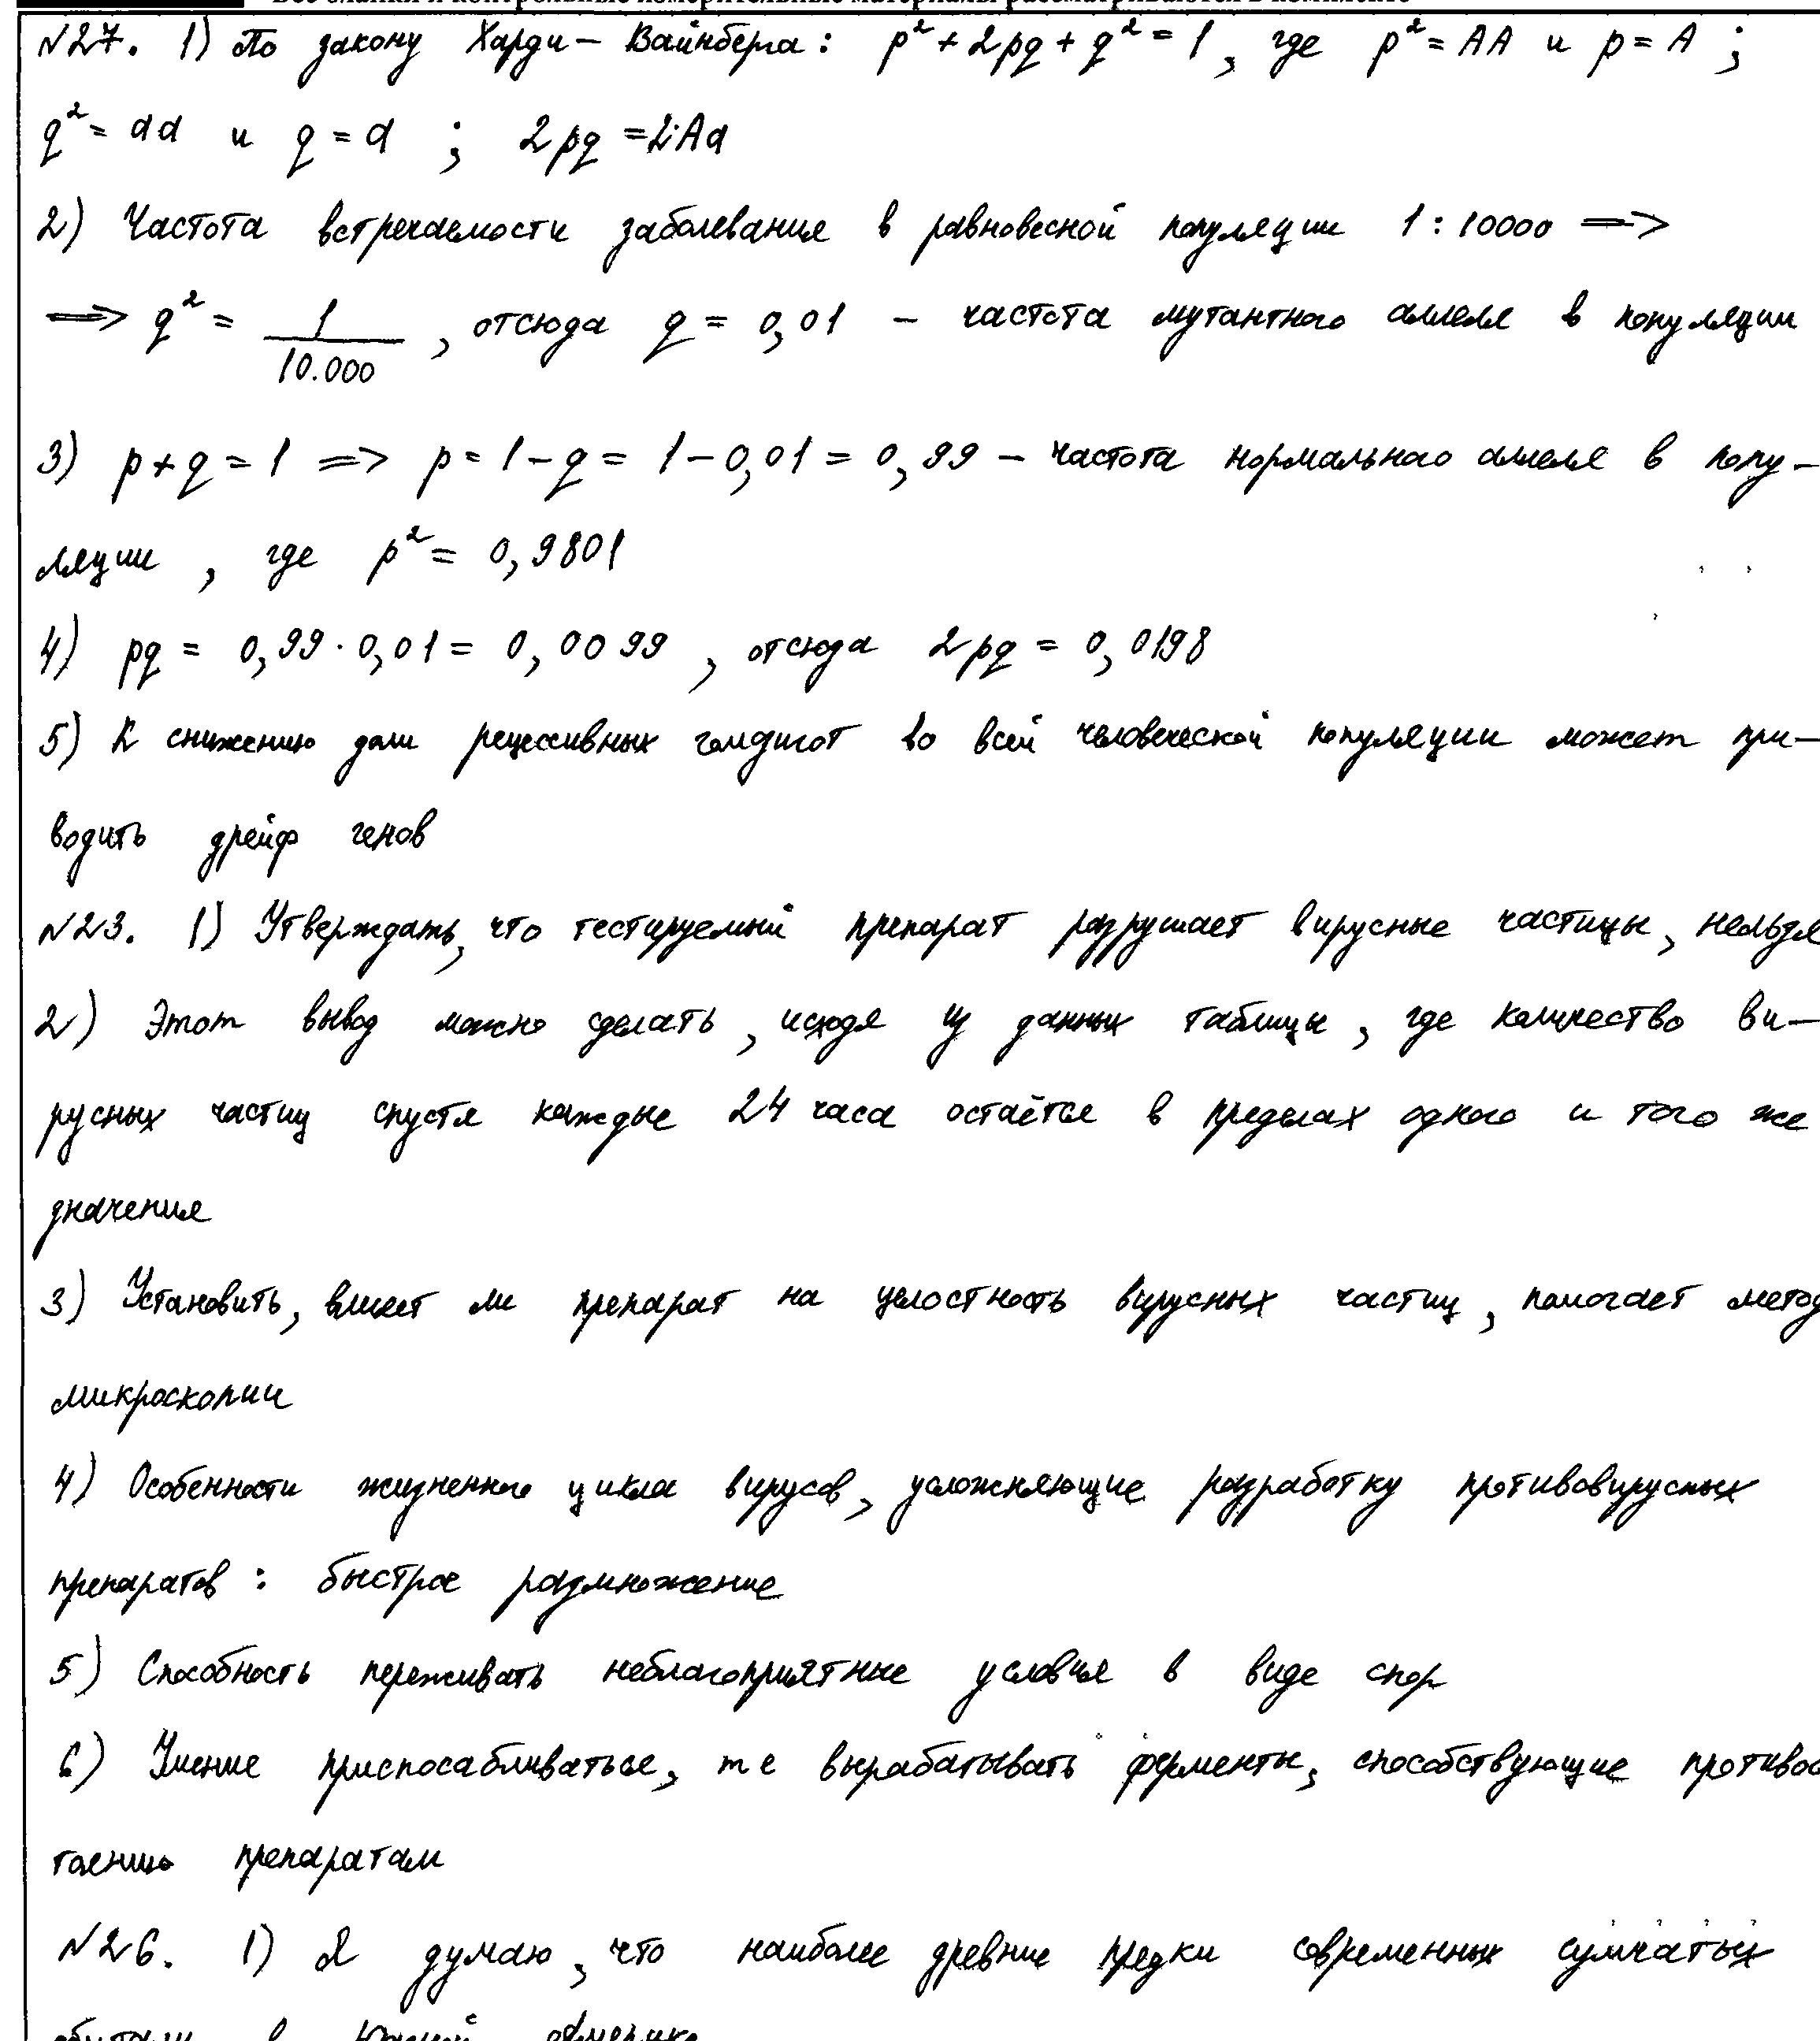 Все бланки и контрольные измерительные материалы рассматриваются в комплекте
№27. 1) По закону Харди – Вайнберга: p² + 2pq + q² = 1, где p² = AA и p = A ;
q² = aa и q = a ; 2pq = 2·Aa
2) Частота встречаемости заболевания в равновесной популяции 1 : 10000 =>
=> q² = 1/10.000, отсюда q = 0,01 – частота мутантного аллеля в популяции
3) p + q = 1 => p = 1 – q = 1 – 0,01 = 0,99 – частота нормального аллеля в попу-
ляции, где p² = 0,9801
4) pq = 0,99 · 0,01 = 0,0099, отсюда 2pq = 0,0198
5) К снижению доли рецессивных гомдигот во всей человеческой популяции может при-
водить дрейф генов
№23. 1) Утверждать, что тестируемый препарат разрушает вирусные частицы, нельзя
2) Этот вывод можно сделать, исходя из данных таблицы, где количество ви-
русных частиц спустя каждые 24 часа остаётся в пределах одного и того же
значения
3) Установить, влияет ли препарат на целостность вирусных частиц, помогает метод
микроскопии
4) Особенности жизненного цикла вирусов, усложняющие разработку противовирусных
препаратов : быстрое размножение
5) Способность переживать неблагоприятные условия в виде спор
6) Умение приспосабливаться, т е вырабатывать ферменты, способствующие противос
тоянию препаратам
№26. 1) Я думаю, что наиболее древние предки современных сумчатых
обитали в Южной Америке